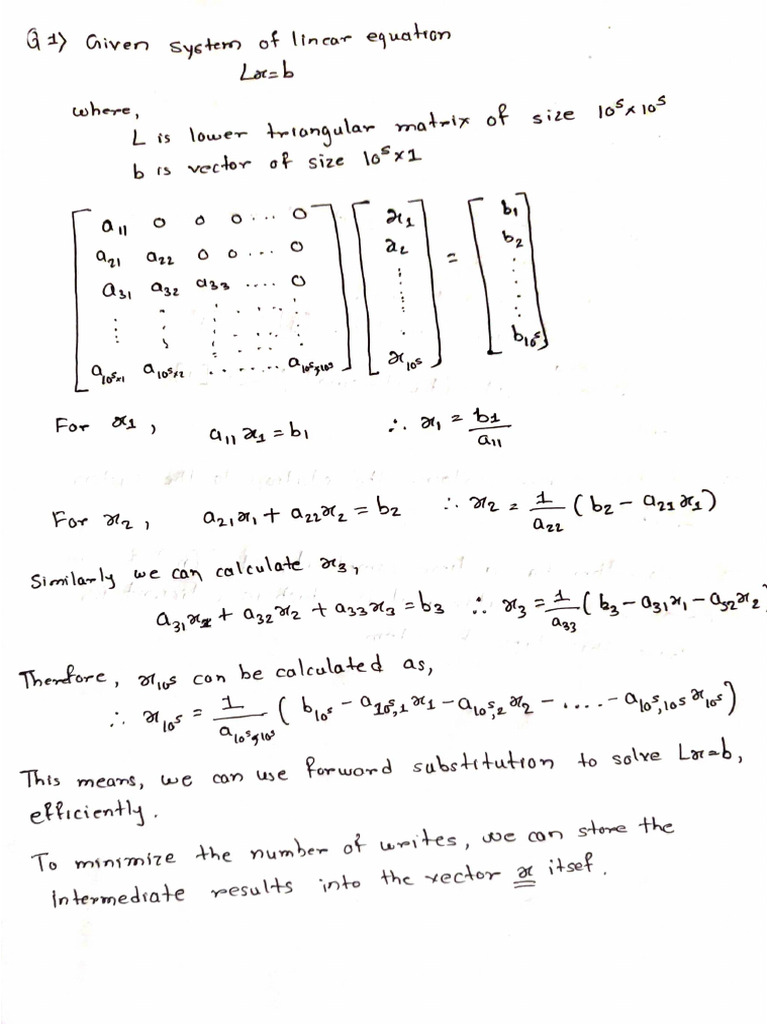 Q 1) Given system of linear equation
Lx=b
where,
L is lower triangular matrix of size 10⁵×10⁵
b is vector of size 10⁵×1
a₁₁ 0 0 0 ... 0 x₁ b₁
a₂₁ a₂₂ 0 0 ... 0 x₂ = b₂
a₃₁ a₃₂ a₃₃ .... 0
a₁₀⁵ₓ₁ a₁₀⁵ₓ₂ ....... a₁₀⁵ₓ₁₀⁵ x₁₀⁵ b₁₀⁵
For x₁, a₁₁x₁=b₁ ∴ x₁ = b₁/a₁₁
For x₂, a₂₁x₁ + a₂₂x₂ = b₂ ∴ x₂ = 1/a₂₂ (b₂ - a₂₁x₁)
Similarly we can calculate x₃,
a₃₁x₁ + a₃₂x₂ + a₃₃x₃ = b₃ ∴ x₃ = 1/a₃₃ (b₃ - a₃₁x₁ - a₃₂x₂)
Therefore, x₁₀⁵ can be calculated as,
∴ x₁₀⁵ = 1/a₁₀⁵,₁₀⁵ (b₁₀⁵ - a₁₀⁵,₁x₁ - a₁₀⁵,₂x₂ - .... - a₁₀⁵,₁₀⁵x₁₀⁵)
This means, we can use forward substitution to solve Lx=b,
efficiently.
To minimize the number of writes, we can store the
intermediate results into the vector x itsef.